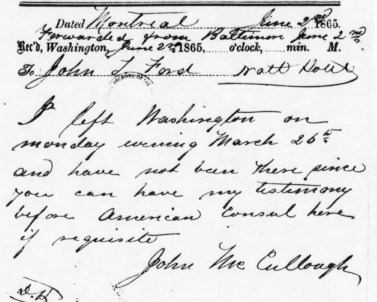 Dated Montreal June 2nd 1865.
Forwarded from Baltimore June 2nd
Rec'd, Washington, June 2nd 1865, o'clock, min. M.
To John T Ford Natl Hotel
I left Washington on
monday evening March 26th
and have not been there since
you can have my testimony
before American Consul here
if requisite
John McCullough